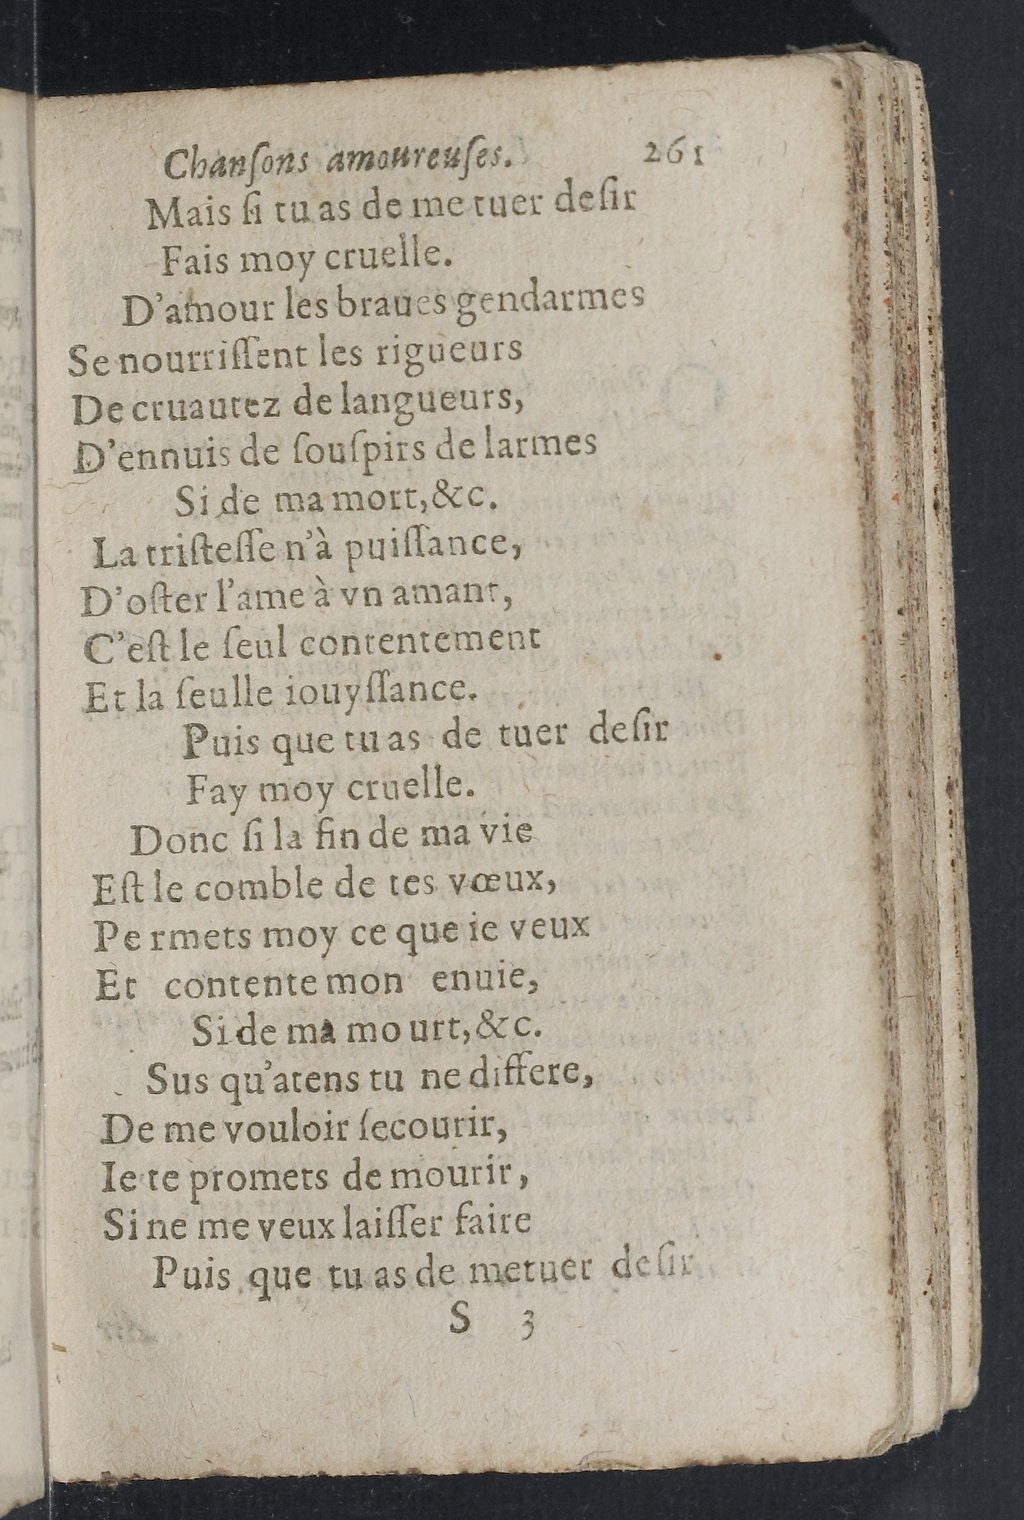 Chanſons amoureuſes. 261
Mais ſi tu as de me tuer deſir
Fais moy cruelle.
D'amour les braues gendarmes
Se nourriſſent les rigueurs
De cruautez de langueurs,
D'ennuis de ſouſpirs de larmes
Si de ma mort,&c.
La triſteſſe n'à puiſſance,
D'oſter l'ame à vn amant,
C'eſt le ſeul contentement
Et la ſeulle iouyſſance.
Puis que tu as de tuer deſir
Fay moy cruelle.
Donc ſi la fin de ma vie
Eſt le comble de tes vœux,
Pe rmets moy ce que ie veux
Et contente mon enuie,
Si de ma mo urt,&c.
Sus qu'atens tu ne differe,
De me vouloir ſecourir,
Ie te promets de mourir,
Si ne me veux laiſſer faire
Puis que tu as de me tuer deſir
S 3